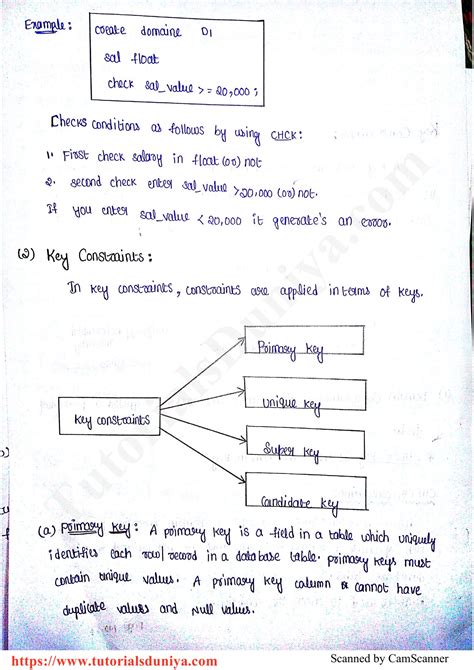 Example:
create domaine D1
sal float
check sal_value >= 20,000;
Checks conditions as follows by using CHCK:
1. First check salary in float (or) not
2. second check enter sal_value >20,000 (or) not.
If you enter sal_value < 20,000 it generate's an error.
(2) Key Constraints:
In key constraints, constraints are applied in terms of keys.
Primary key
Unique key
Key constraints
Super key
Candidate key
(a) Primary key: A primary key is a field in a table which uniquely
identifies each row/record in a database table. primary keys must
contain unique values. A primary key column cannot have
duplicate values and Null values.
TutorialsDuniya.com
https://www.tutorialsduniya.com
Scanned by CamScanner